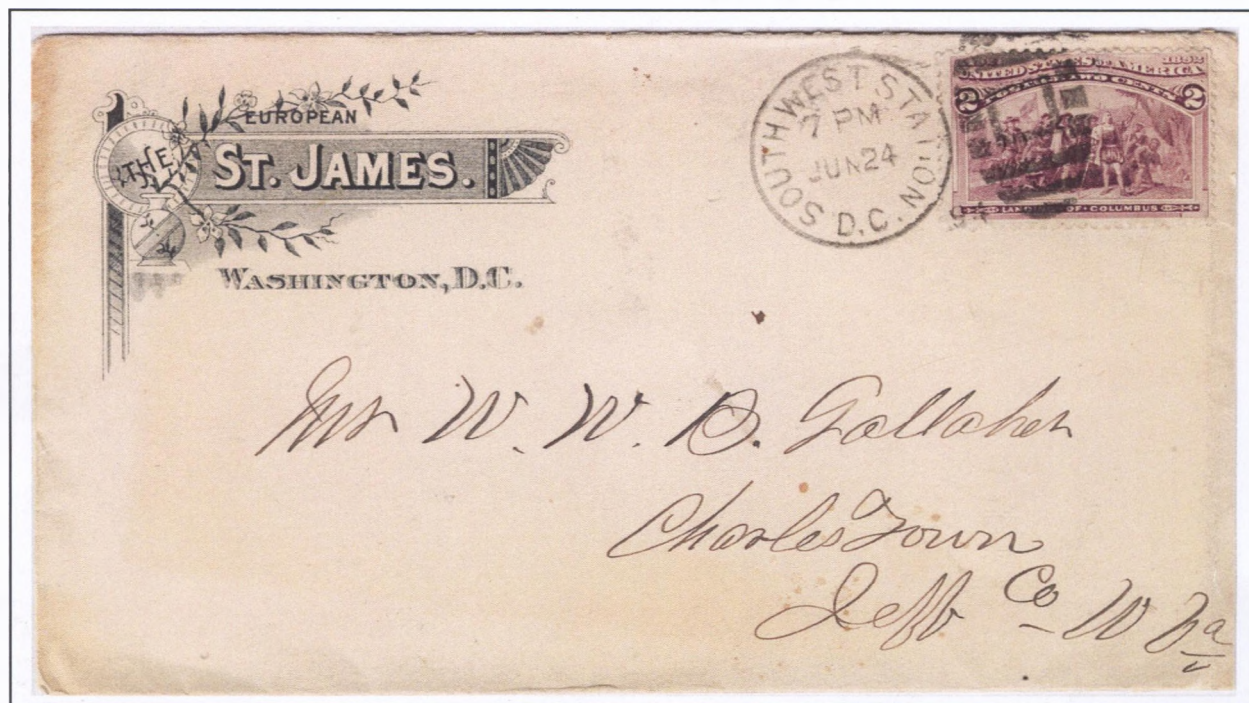 EUROPEAN
THE
ST. JAMES.
WASHINGTON, D.C.
SOUTHWEST STATION
7 PM
JUN 24
D.C.
UNITED STATES OF AMERICA
2 POSTAGE TWO CENTS 2
LANDING OF COLUMBUS
Mr W. W. B. Gallaher
Charles Town
Jeff Co W Va